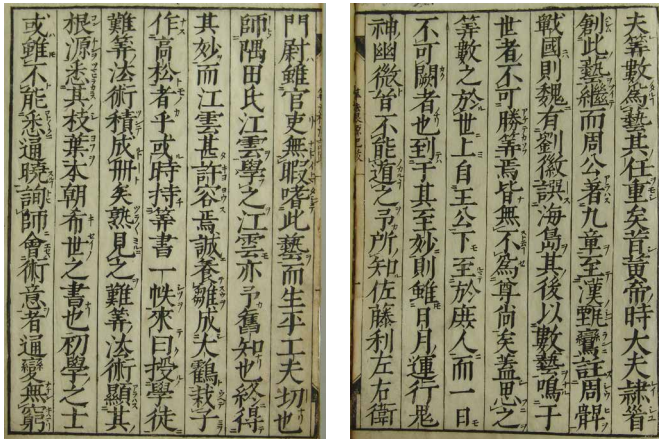 夫筭數爲藝其任重矣昔黄帝時大夫隷首
創此藝繼而周公著九章至漢甄鸞註周髀
戰國則魏有劉徽譔海島其後以數藝鳴于
世者不可勝筭焉皆無不爲尊尚矣蓋思之
筭數之於世上自王公下至於庻人而一日
不可闕者也到于其至妙則雖日月運行鬼
神幽微皆不能道之予所知佐藤利左右衛
門尉雖官吏無暇嗜此藝而生平工夫切也
師隅田氏江雲學之江雲亦予舊知也終得
其妙而江雲甚許容焉誠養雛成大鶴栽子
作高松者乎或時持筭書一帙來曰授學徒
難筭法術積成册矣熟見之難筭法術顯其
根源悉其枝葉本朝希世之書也初學之士
或雖不能悉通曉詢師會術意者通變無窮